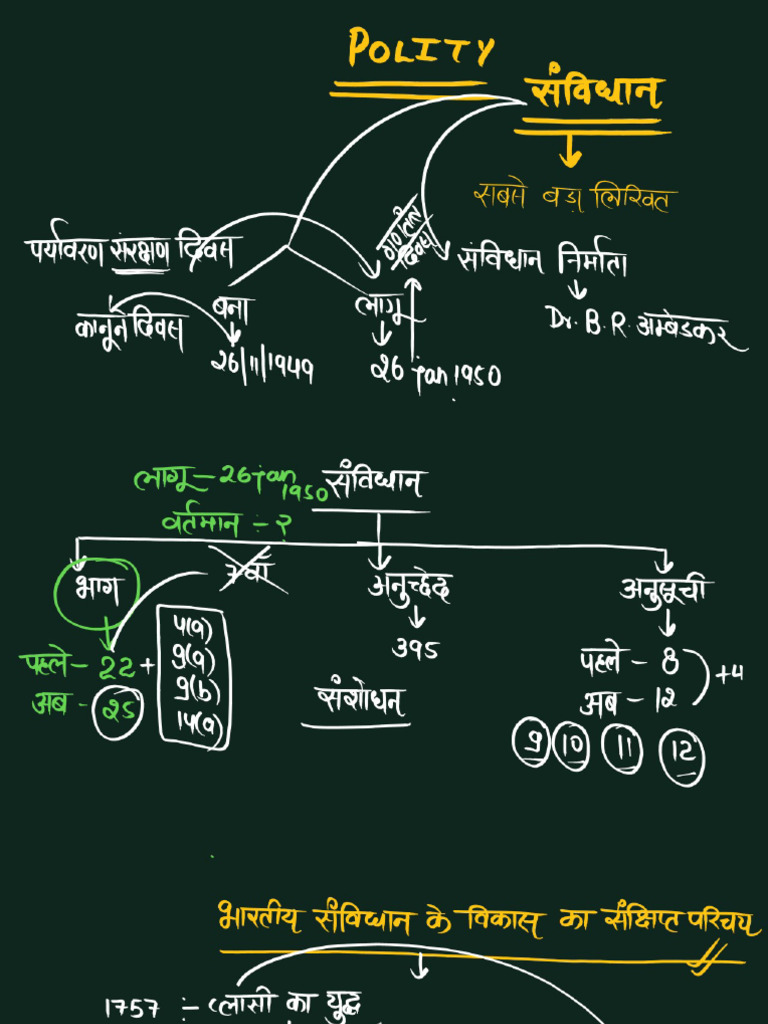 POLITY
संविधान
सबसे बड़ा लिखित
गणतंत्र दिवस
पर्यावरण संरक्षण दिवस
संविधान निर्माता
बना
लागू
Dr. B. R. अम्बेडकर
कानून दिवस
26/11/1949
26 jan 1950
लागू – 26 jan 1950
संविधान
वर्तमान :- ?
भाग
7वाँ
अनुच्छेद
अनुसूची
395
पहले – 22 +
4(a)
9(a)
9(b)
14(a)
अब – 25
संशोधन
पहले – 8
अब – 12
+4
9 10 11 12
भारतीय संविधान के विकास का संक्षिप्त परिचय
1757 :- प्लासी का युद्ध